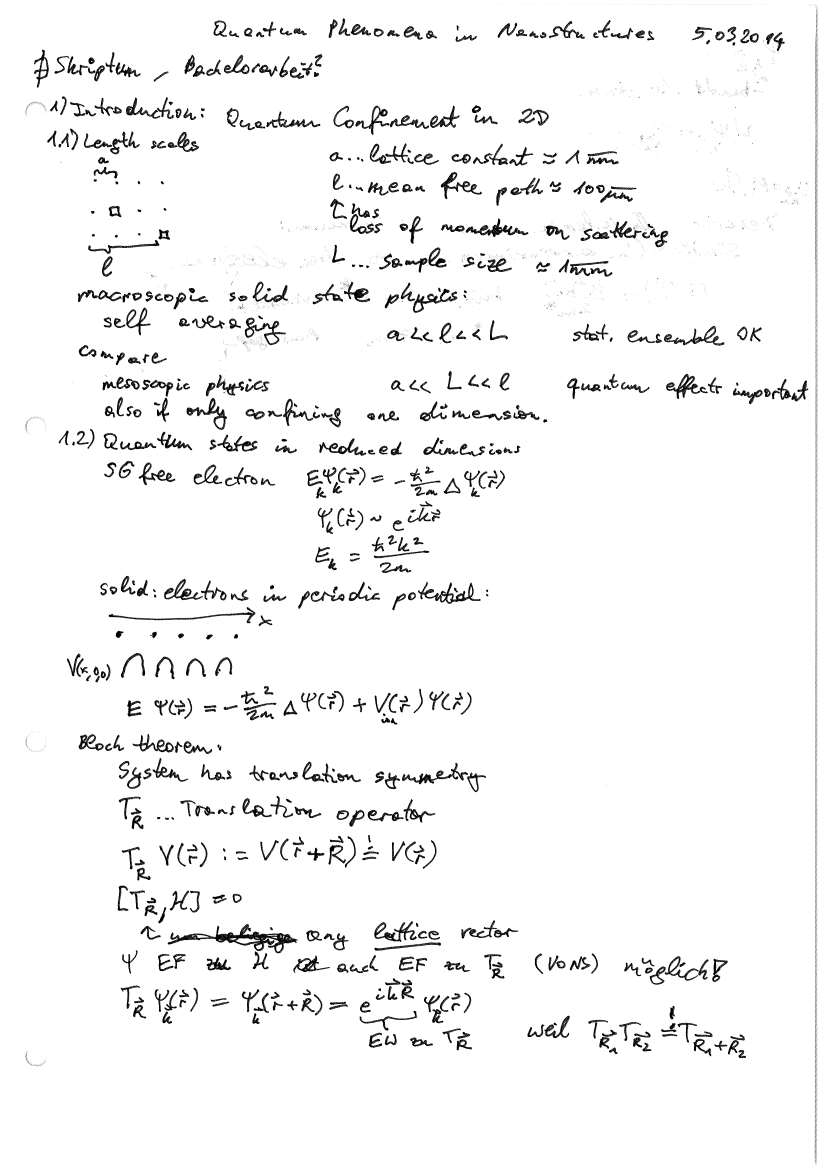 Quantum Phenomena in Nanostructures 5.03.2014
∄ Skriptum, Bachelorarbeit?
1) Introduction: Quantum Confinement in 2D
1.1) Length scales
a
a...lattice constant ≈ 1nm
l...mean free path ≈ 100μm
↑ has
loss of momentum on scattering
l
L ... sample size ≈ 1mm
macroscopic solid state physics:
self averaging a<<l<<L stat. ensemble OK
compare
mesoscopic physics a<< L<<l quantum effects important
also if only confining one dimension.
1.2) Quantum states in reduced dimensions
SG free electron E_k Ψ_k(r⃗) = -ħ²/2m Δ Ψ_k(r⃗)
Ψ_k(r⃗) ~ e^{ik⃗r⃗}
E_k = ħ²k²/2m
solid: electrons in periodic potential:
x
V(x,0,0)
E Ψ(r⃗) = -ħ²/2m Δ Ψ(r⃗) + V(r⃗) Ψ(r⃗)
Bloch theorem:
System has translation symmetry
T_R⃗ ... Translation operator
T_R⃗ V(r⃗) := V(r⃗+R⃗) =! V(r⃗)
[T_R⃗, H] = 0
↑ any lattice vector
Ψ EF zu H auch EF zu T_R⃗ (VONS) möglich!
T_R⃗ Ψ_k⃗(r⃗) = Ψ_k⃗(r⃗+R⃗) = e^{ik⃗R⃗} Ψ_k⃗(r⃗)
EW zu T_R⃗ weil T_R⃗₁ T_R⃗₂ =! T_R⃗₁+R⃗₂